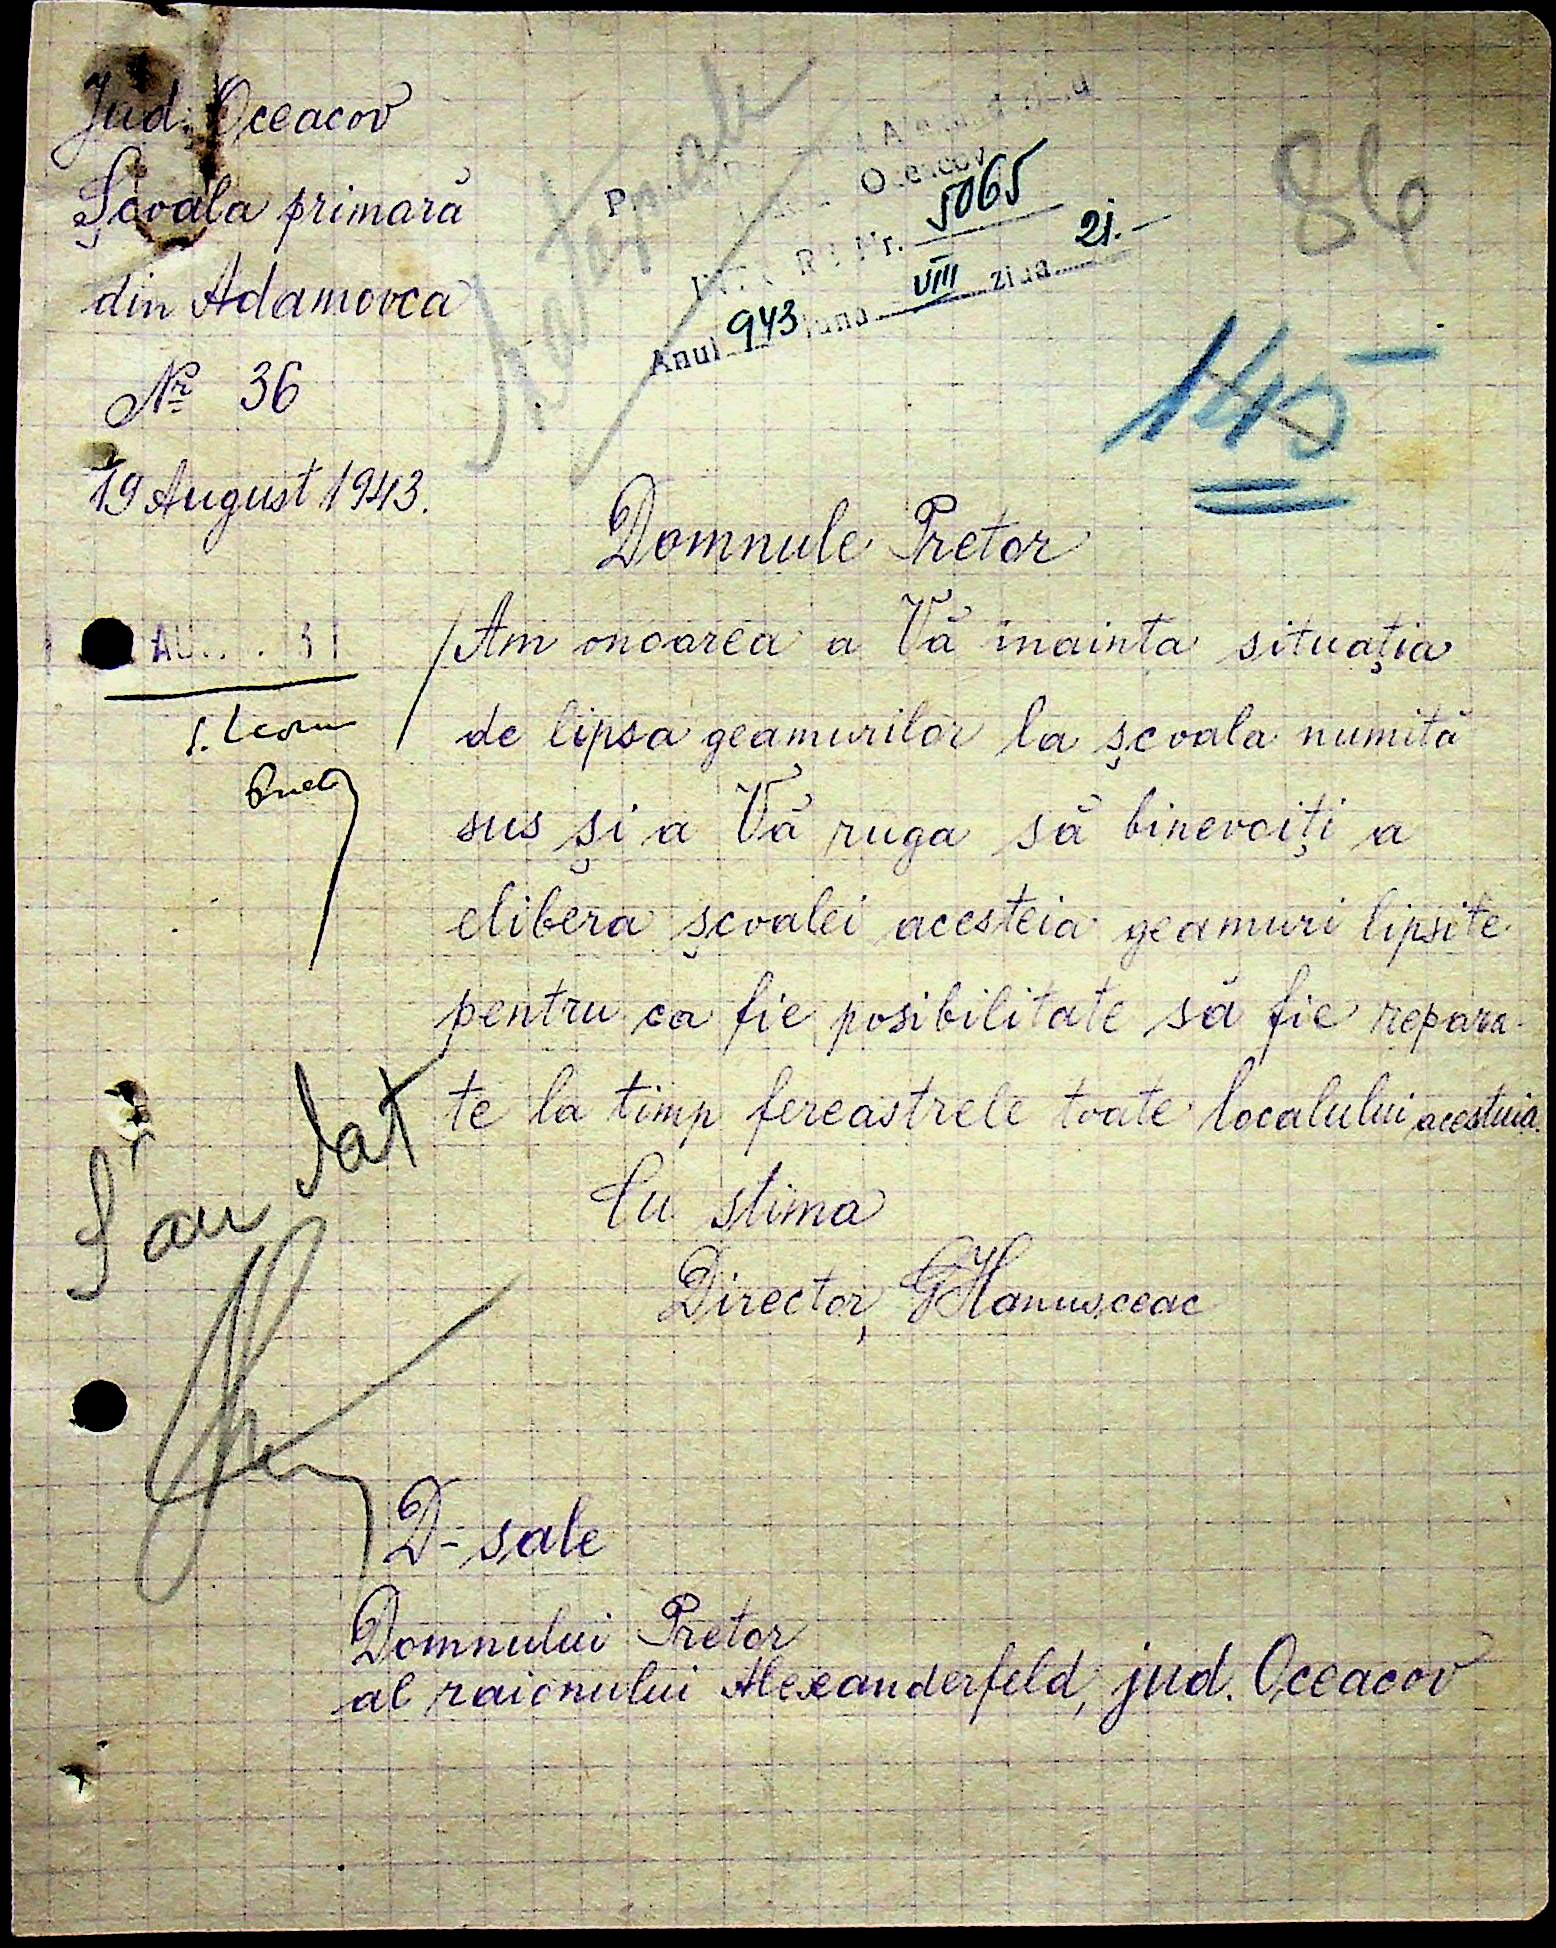 Jud. Oceacov
Școala primară
din Adamovca
Nr 36
19 August 1943.
Materiale
Oceacov
Nr. 5065
Anul 943 luna VIII ziua 21.-
86
145
Domnule Pretor
Am onoarea a Vă inainta situația
de lipsa geamurilor la școala numită
sus și a Vă ruga să binevoiți a
elibera școalei acesteia geamuri lipsite
pentru ca fie posibilitate să fie repara-
te la timp fereastrele toate localului acestuia.
S'au dat
Cu stima
Director, G Hanusceac
D-sale
Domnului Pretor
al raionului Alexanderfeld, jud. Oceacov